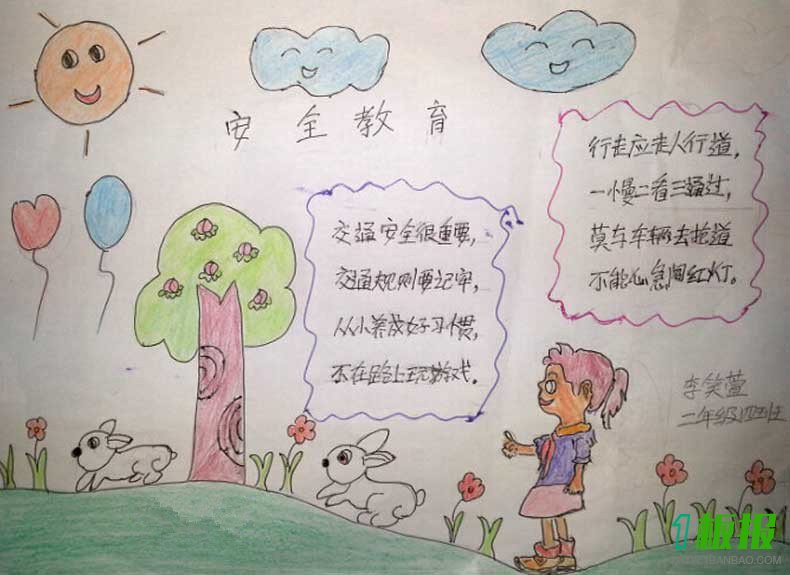 安全教育
交通安全很重要,
交通规则要记牢,
从小养成好习惯,
不在路上玩游戏。
行走应走人行道,
一慢二看三通过,
莫与车辆去抢道
不能心急闯红灯。
李笑萱
二年级四班
1板报
WWW.1BANBAO.COM